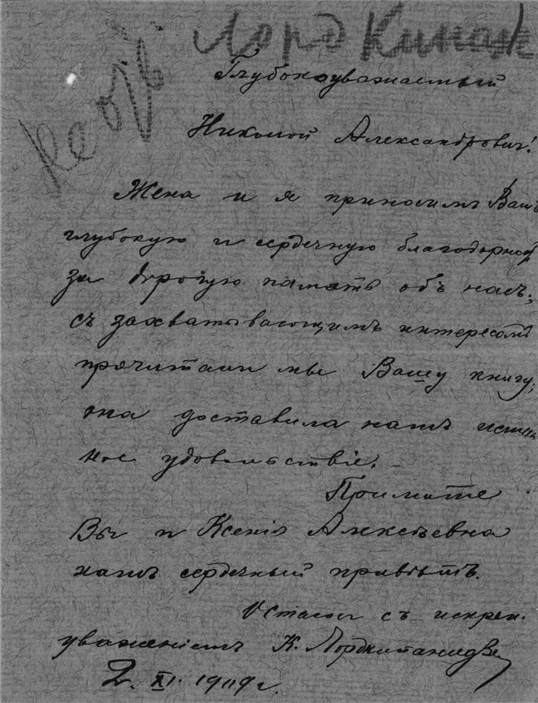 Лорд Кипан
Глубокоуважаемый
Николай Александрович!
Жена и я приносимъ Вамъ
глубокую и сердечную благодарность
за дорогую память объ насъ;
съ захватывающимъ интересомъ
прочитали мы Вашу книгу;
она доставила намъ истин
ное удовольствіе.
Примите
Вы и Ксенія Алексѣевна
нашъ сердечный привѣтъ.
Остаюсь съ искрен.
уваженіемъ К. Лордкипанидзе
2. XI. 1909 г.